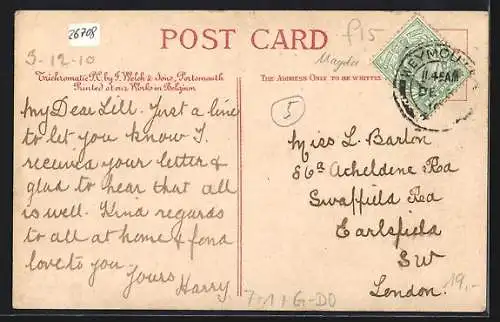 26708
POST CARD
£15
3-12-10
Magpies
Trichromatic P.C. by F. Welch & Sons, Portsmouth
Printed at our Works in Belgium
THE ADDRESS ONLY TO BE WRITTEN
WEYMOUTH
11.45AM
DE
5
My Dear Lill. Just a line
to let you know I.
received your letter &
glad to hear that all
is well. Kind regards
to all at home & fond
love to you.
Yours
Harry.
Miss L. Barton
86a Acheldene Rd
Swaffield Rd
Earlsfield
SW
London.
19,-